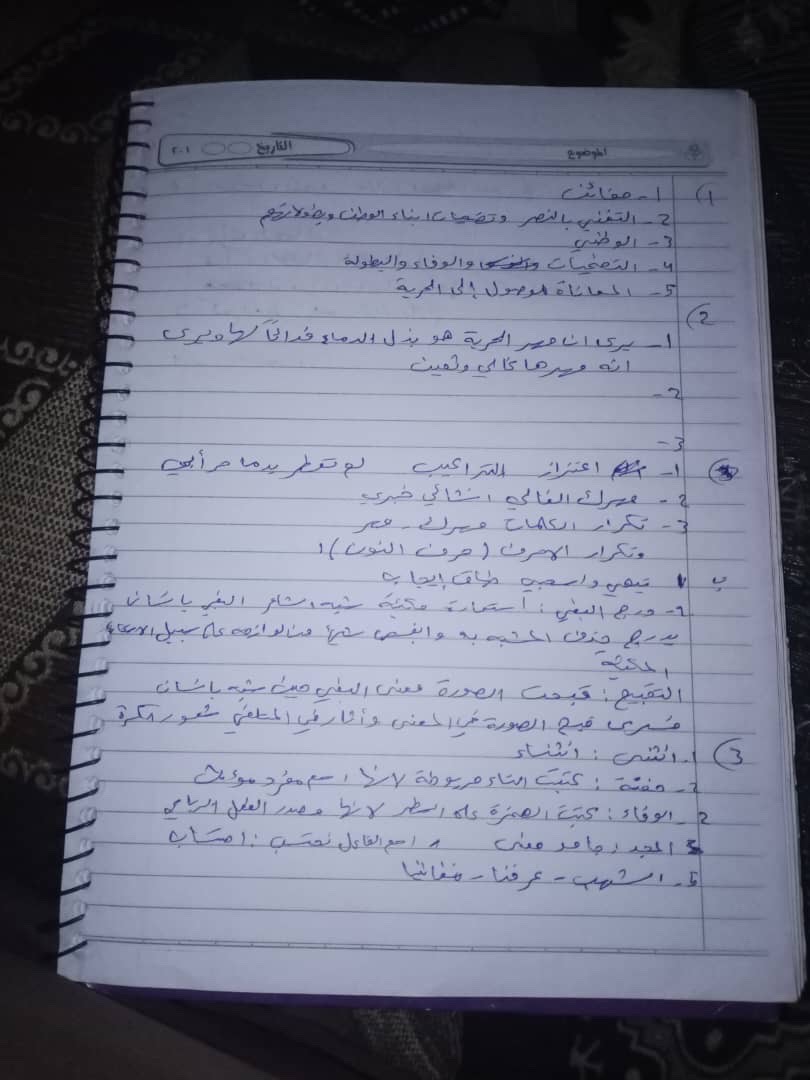 الموضوع التاريخ ٢٠١
1) 1- صفائن
2- التغني بالنصر وتضحيات ابناء الوطن وبطولاتهم
3- الوطني
4- التضحيات والوفاء والبطولة
5- المعاناة للوصول إلى الحرية
2)
1- يرى ان مهر الحرية هو بذل الدماء فدائاً لها ويرى
انه مهرها غالي وثمين
2-
3-
1- اعتزاز التراكيب لم تعطر بدماء أبي
2- مهرك الغالي انشائي خبري
3- تكرار الكلمات مهرك - مهر
وتكرار الاحرف (حرف النون)
ب 1 تيهي واسحبي طباق إيجاب
2- درج البغي: استعارة مكنية شبه الشاعر البغي بإنسان
يدرج حذف المشبه به وابقى شيئاً من لوازمه على سبيل الاستعارة
المكنية
التقبيح: قبحت الصورة معنى البغي حيث شبه بإنسان
فسرى قبح الصورة في المعنى وأثار في المتلقي شعور الكره
3) 1. انثنى: انثناء
2- كتبت التاء مربوطة لانها اسم مفرد مؤنث
2- الوفاء: كتبت الهمزة على السطر لانها مصدر الفعل الرباعي
3 المجد: جامد معنى اسم الفاعل
5- الشهب - عرفنا